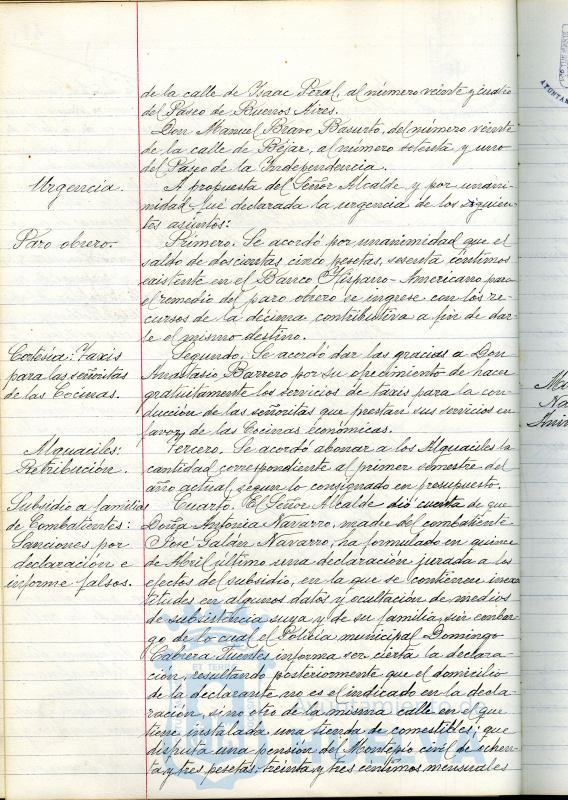 de la calle de Isaac Peral, al número veinte y cuatro
del Paseo de Buenos Aires.
Don Manuel Bravo Basurto, del número veinte
de la calle de Béjar, al número setenta y uno
del Paseo de la Independencia.
Urgencia.
A propuesta del Señor Alcalde y por unani-
midad fué declarada la urgencia de los siguien-
tes asuntos:
Paro obrero.
Primero. Se acordó por unanimidad que el
saldo de doscientas cinco pesetas, sesenta céntimos
existente en el Banco Hispano-Americano para
el remedio del paro obrero se ingrese con los re-
cursos de la décima contributiva a fin de dar-
le el mismo destino.
Cortesía: Taxis
para las señoritas
de las Cocinas.
Segundo. Se acordó dar las gracias a Don
Anastasio Barrero por su ofrecimiento de hacer
gratuitamente los servicios de taxis para la con-
ducción de las señoritas que prestan sus servicios en
favor de las Cocinas Económicas.
Alguaciles:
Retribución.
Tercero. Se acordó abonar a los Alguaciles la
cantidad correspondiente al primer semestre del
año actual, según lo consignado en presupuesto.
Subsidio a familias
de Combatientes:
Sanciones por
declaración e
informe falsos.
Cuarto. El Señor Alcalde dió cuenta de que
Doña Antonia Navarro, madre del combatiente
José Galdín Navarro, ha formulado en quince
de Abril último una declaración jurada a los
efectos del subsidio, en la que se contienen inexac-
titudes en algunos datos y ocultación de medios
de subsistencia suya y de su familia, sin embar-
go de lo cual el Policía municipal Domingo
Cabrera Fuentes informa ser cierta la declara-
ción, resultando posteriormente que el domicilio
de la declarante no es el indicado en la decla-
ración, sino otro de la misma calle en el que
tiene instalada una tienda de comestibles; que
disfruta una pensión del Montepío civil de ochen-
ta y tres pesetas, treinta y tres céntimos mensuales
Ayuntamiento
HUELVA